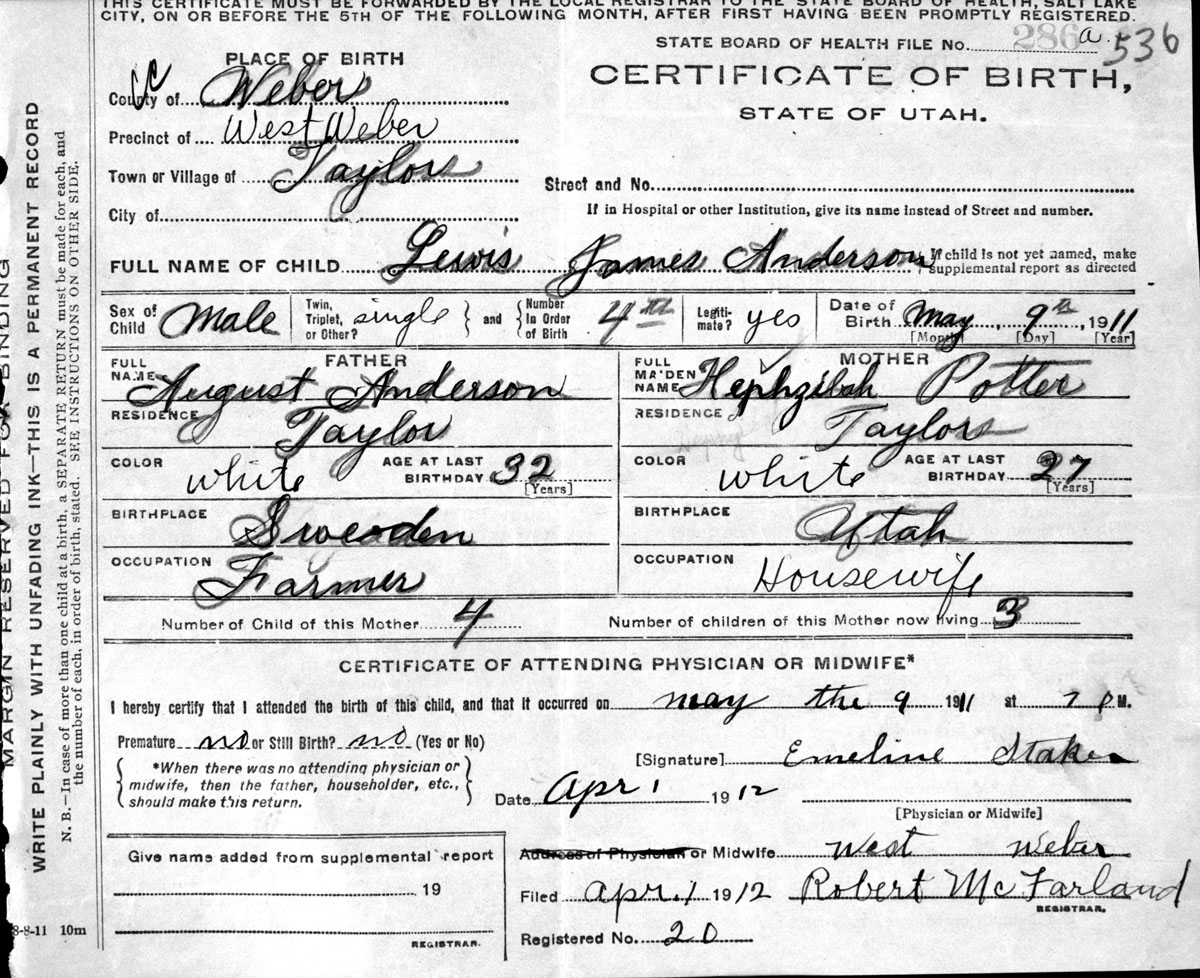 THIS CERTIFICATE MUST BE FORWARDED BY THE LOCAL REGISTRAR TO THE STATE BOARD OF HEALTH, SALT LAKE
CITY, ON OR BEFORE THE 5TH OF THE FOLLOWING MONTH, AFTER FIRST HAVING BEEN PROMPTLY REGISTERED.
STATE BOARD OF HEALTH FILE No. 286 a 536
CERTIFICATE OF BIRTH,
STATE OF UTAH.
PLACE OF BIRTH
County of Weber
Precinct of West Weber
Town or Village of Taylors
Street and No.
City of
If in Hospital or other Institution, give its name instead of Street and number.
FULL NAME OF CHILD Lewis James Anderson
If child is not yet named, make
supplemental report as directed
Sex of Child Male
Twin, Triplet, or Other? single } and { Number In Order of Birth 4th
Legiti-mate? yes
Date of Birth May 9th, 1911
[Month] [Day] [Year]
FATHER
FULL NAME August Anderson
RESIDENCE Taylor
COLOR white AGE AT LAST BIRTHDAY 32
[Years]
BIRTHPLACE Sweoden
OCCUPATION Farmer
MOTHER
FULL MAIDEN NAME Hephzibah Potter
RESIDENCE Taylors
COLOR white AGE AT LAST BIRTHDAY 27
[Years]
BIRTHPLACE Utah
OCCUPATION Housewife
Number of Child of this Mother 4
Number of children of this Mother now living 3
CERTIFICATE OF ATTENDING PHYSICIAN OR MIDWIFE*
I hereby certify that I attended the birth of this child, and that it occurred on may the 9 1911 at 7 P M.
Premature no or Still Birth? no (Yes or No)
{ *When there was no attending physician or
midwife, then the father, householder, etc.,
should make this return. }
[Signature] Emeline Staker
Date Apr 1 1912
[Physician or Midwife]
Address of Physician or Midwife West Weber
Filed apr. 1 1912 Robert McFarland
REGISTRAR.
Registered No. 20
Give name added from supplemental report
19
REGISTRAR.
8-8-11 10m
MARGIN RESERVED FOR BINDING
WRITE PLAINLY WITH UNFADING INK—THIS IS A PERMANENT RECORD
N. B.—In case of more than one child at a birth, a SEPARATE RETURN must be made for each, and
the number of each, in order of birth, stated. SEE INSTRUCTIONS ON OTHER SIDE.